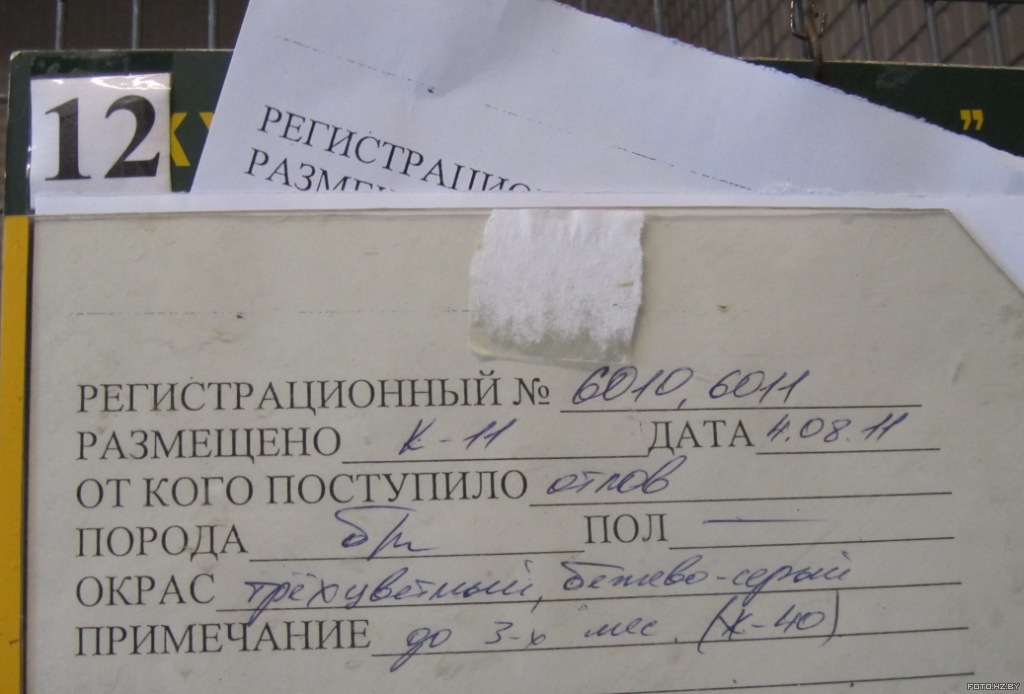 12
”
РЕГИСТРАЦИО
РАЗМЕ
РЕГИСТРАЦИОННЫЙ № 6010, 6011
РАЗМЕЩЕНО К-11 ДАТА 4.08.11
ОТ КОГО ПОСТУПИЛО отлов
ПОРОДА б/п ПОЛ —
ОКРАС трёхцветный, бежево-серый
ПРИМЕЧАНИЕ до 3-х мес. (К-40)
FOTO.HZ.BY